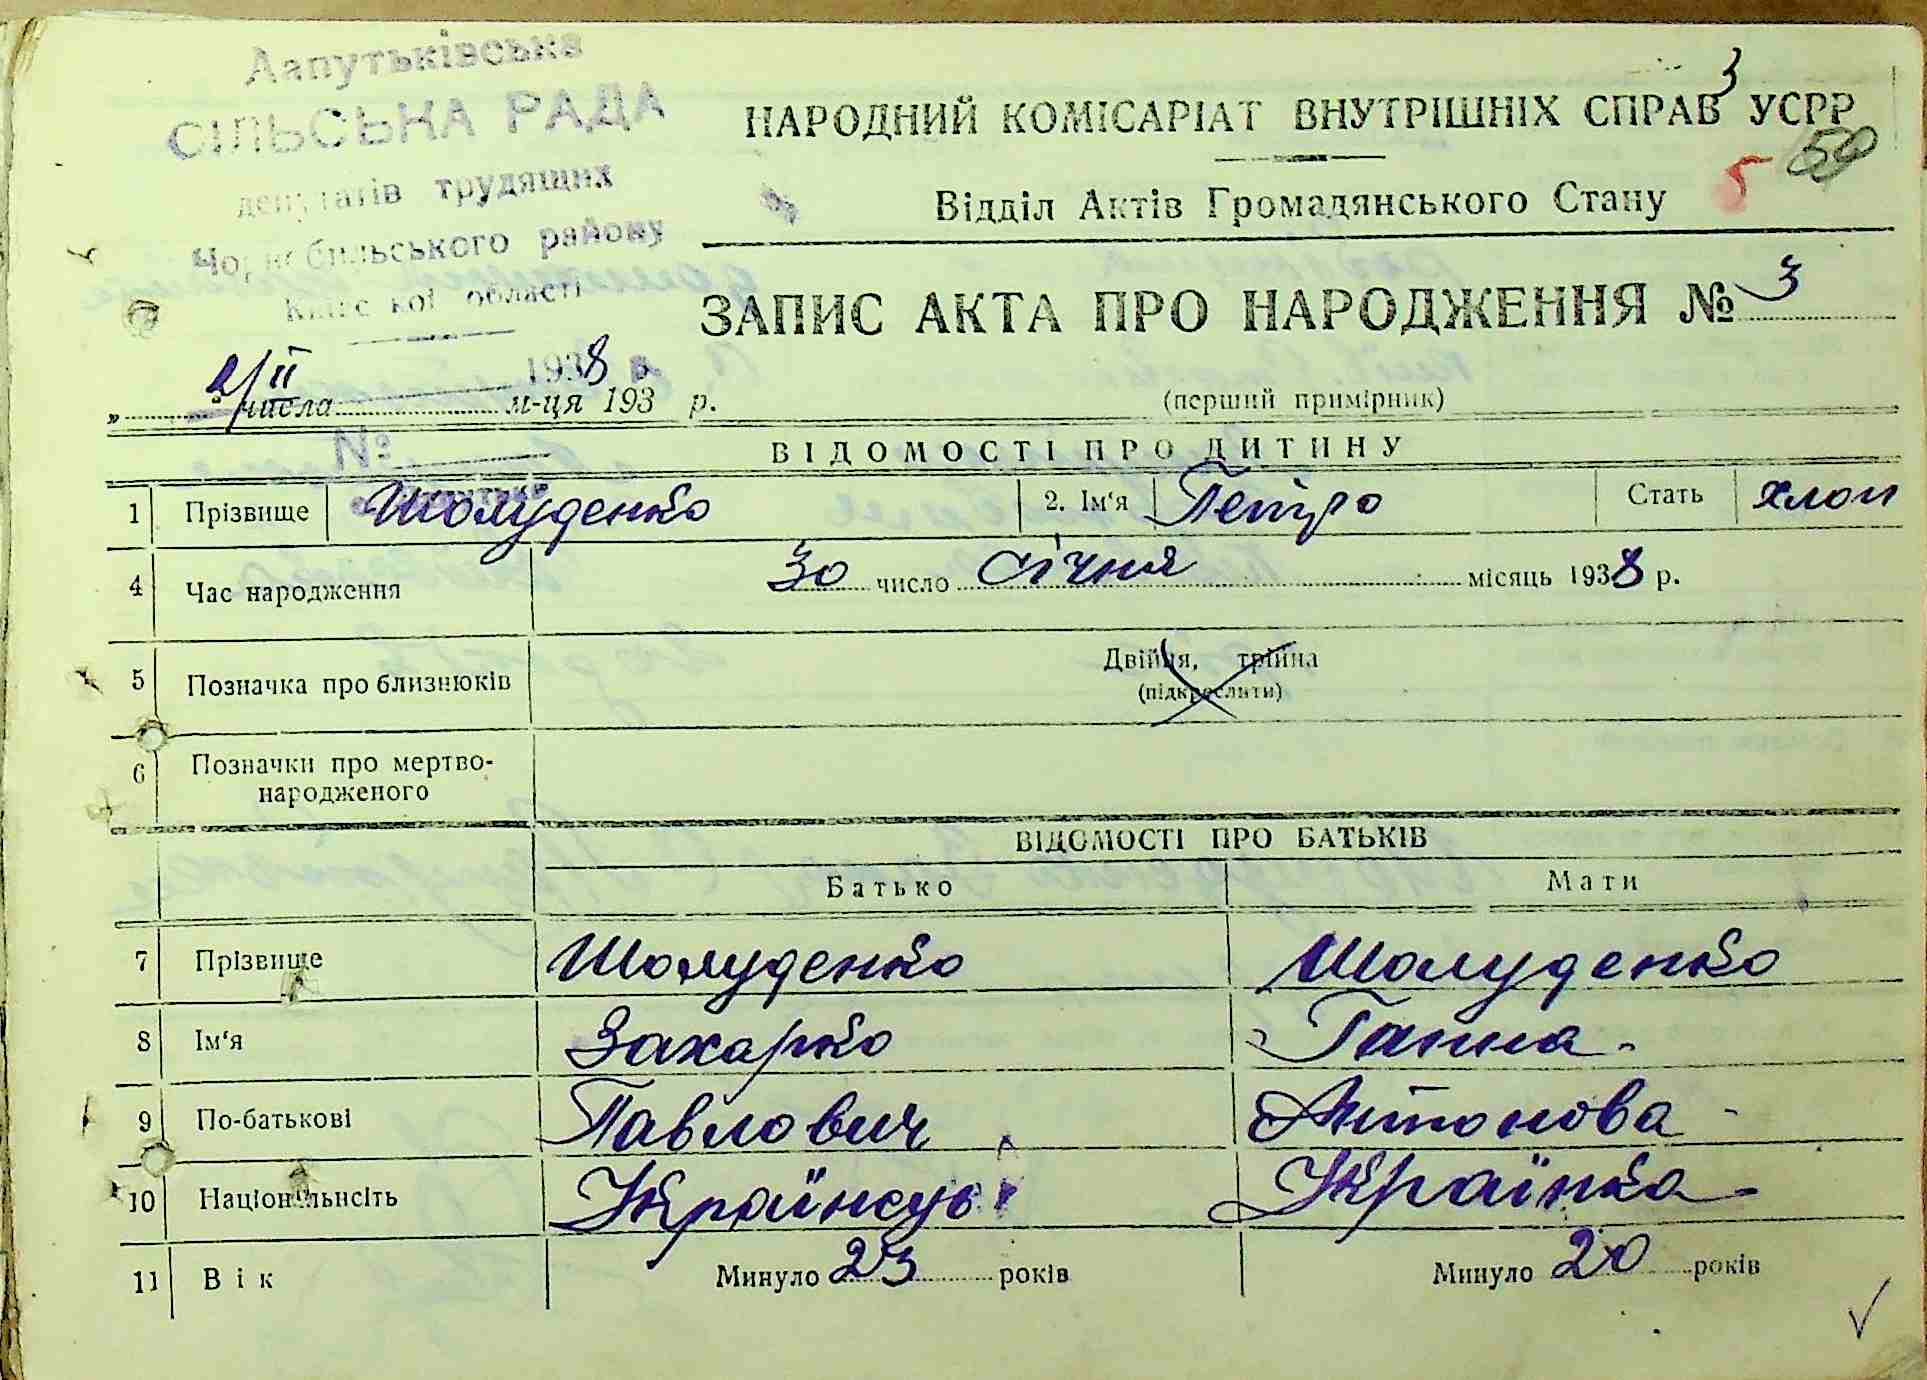 Лапутьківська
СІЛЬСЬКА РАДА
депутатів трудящих
Чорнобильського району
Київської області
2/II 1938 р.
№
3
НАРОДНИЙ КОМІСАРІАТ ВНУТРІШНІХ СПРАВ УСРР
5 50
Відділ Актів Громадянського Стану
ЗАПИС АКТА ПРО НАРОДЖЕННЯ № 3
„ числа м-ця 193 р. (перший примірник)
ВІДОМОСТІ ПРО ДИТИНУ
1 Прізвище Шолуденко 2. Ім'я Петро Стать хлоп
4 Час народження 30 число січня місяць 1938 р.
5 Позначка про близнюків Двійня, трійна
(підкреслити)
6 Позначки про мертво-
народженого
ВІДОМОСТІ ПРО БАТЬКІВ
Батько Мати
7 Прізвище Шолуденко Шолуденко
8 Ім'я Захарко Ганна
9 По-батькові Павлович Антонова
10 Національність Українець Українка
11 Вік Минуло 23 років Минуло 20 років